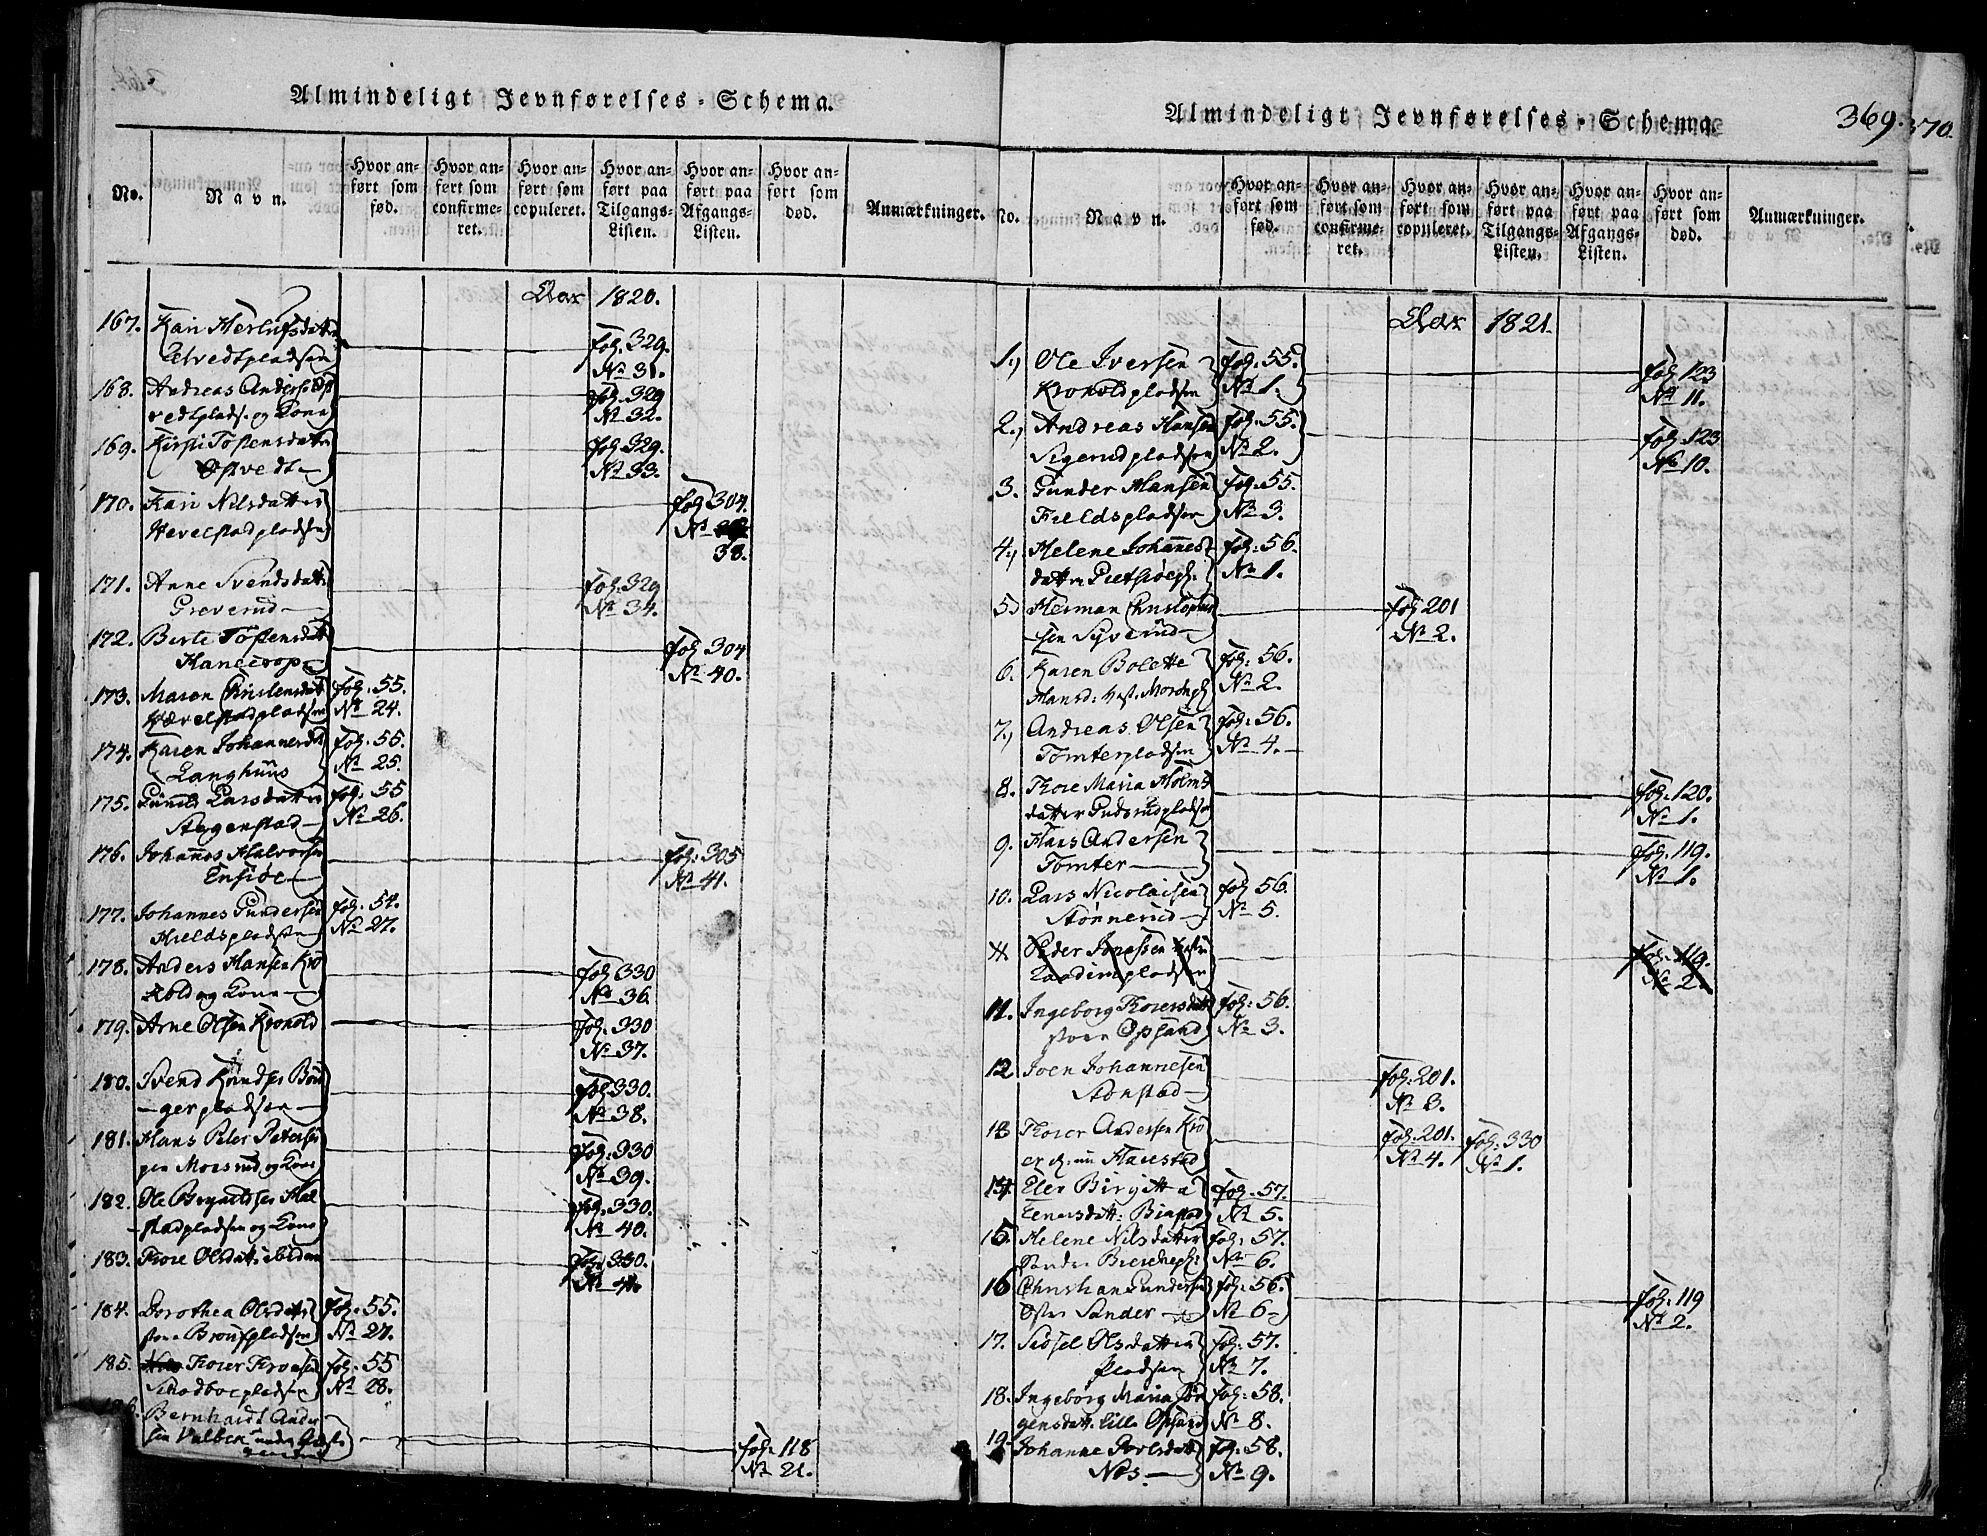 Almindeligt Jevnførelses-Schema.
No.
Navn.
Hvor anført som fød.
Hvor anført som confirmeret.
Hvor anført som copuleret.
Hvor anført paa Tilgangs-Listen.
Hvor anført paa Afgangs-Listen.
Hvor anført som død.
Anmærkninger.
Aar 1820.
167. Kari Herlufsdatter
pladsen
fol. 329.
No 31.
168. Andreas Anders
pladsen og Kone
fol. 329
No 32.
169. Kirsti Tostensdatter
Ostvedt
fol. 329.
No 33.
170. Kari Nilsdatter
Hevelstadpladsen
fol 304.
No
38.
171. Anne Svendsdatter
Greverud
fol. 329
No 34.
172. Berte Tostensdatt
fol 304
No 40.
173. Maren Christensdatt
Hævelstadpladsen
fol. 55.
No 24.
174. Karen Johannesdatt
Langhuus
fol. 55.
No 25.
175. Gunild Larsdatter
Stegenstad
fol. 55
No 26.
176. Johannes Halvorsen
Ensiøe
fol. 305
No 41.
177. Johannes Gundersen
Kieldspladsen
fol. 54.
No 27.
178. Anders Hansen Kro
nold og Kone
fol 330
No 36.
179. Arne Olsen Kronold
fol. 330
No 37.
180. Svend Knudsen Bøn
gerpladsen
fol. 330.
No 38.
181. Hans Peter Petersen
og Kone
fol. 330
No 39.
182. Ole
stadpladsen og Kone
fol. 330.
No 40.
183. Thore Olsdatt. ibidem
fol. 330.
No 41.
184. Dorothea Olsdatter
store Bronspladsen
fol. 55.
No 27.
185. Thorer Thronsen
Skodboepladsen
fol. 55
No 28.
186. Bernhardt Ander
sen
fol. 118
No 21.
Almindeligt Jevnførelses-Schema.
369.
370.
No.
Navn.
Hvor anført som fød.
Hvor anført som confirmeret.
Hvor anført som copuleret.
Hvor anført paa Tilgangs-Listen.
Hvor anført paa Afgangs-Listen.
Hvor anført som død.
Anmærkninger.
Aar 1821.
1., Ole Iversen
Kronoldpladsen
fol. 55.
No 1.
fol 123
No 11.
2., Andreas Hansen
Sigerudpladsen
fol. 55.
No 2.
fol. 123
No 10.
3. Gunder Hansen
Fieldspladsen
fol. 55.
No 3.
4., Helene Johannes
datter
fol. 56.
No 1.
5. Herman Christopher
sen Siverud
fol 201
No 2.
6. Karen Bolette
Hansd.
fol. 56.
No 2.
7., Andreas Olsen
Tomterpladsen
fol. 56.
No 4.
8. Thore Maria Holms
datter Gudsrudpladsen
fol. 120.
No 1.
9. Hans Andersen
Tomter
fol. 119.
No 1.
10. Lars Nicolaisen
Stonnerud
fol 56.
No 5.
Peder Jonassen
pladsen
fol. 119.
No 2.
11. Ingeborg Thoersdatt
store Opsand
fol. 56.
No 3.
12 Joen Johannesen
Stonstad
fol. 201.
No 3.
13 Thorer Andersen Kro
fol. 201.
No 4.
fol. 330
No 1.
14. Elen Birgitta
Eenersdatt:
fol. 57.
No 5.
15. Helene Nilsdatter
Sander
fol. 57.
No 6.
16 Christian Gundersen
Øster Sander
fol. 56.
No 6
fol. 119
No 2.
17. Sidsel Olsdatter
Pladsen
fol. 57.
No 7.
18. Ingeborg Maria Jør
gensdatt. lille Opsand
fol. 58.
No 8.
19. Johanne Povlsdatt
Næs
fol. 58.
No 9.